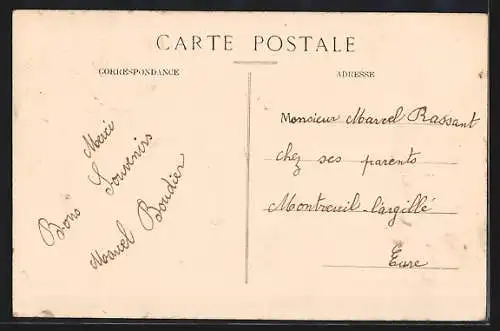 CARTE POSTALE
CORRESPONDANCE
Merci
Bons Souvenirs
Marcel Boudier
ADRESSE
Monsieur Marcel Rassant
chez ses parents
Montreuil-l'argillé
Eure